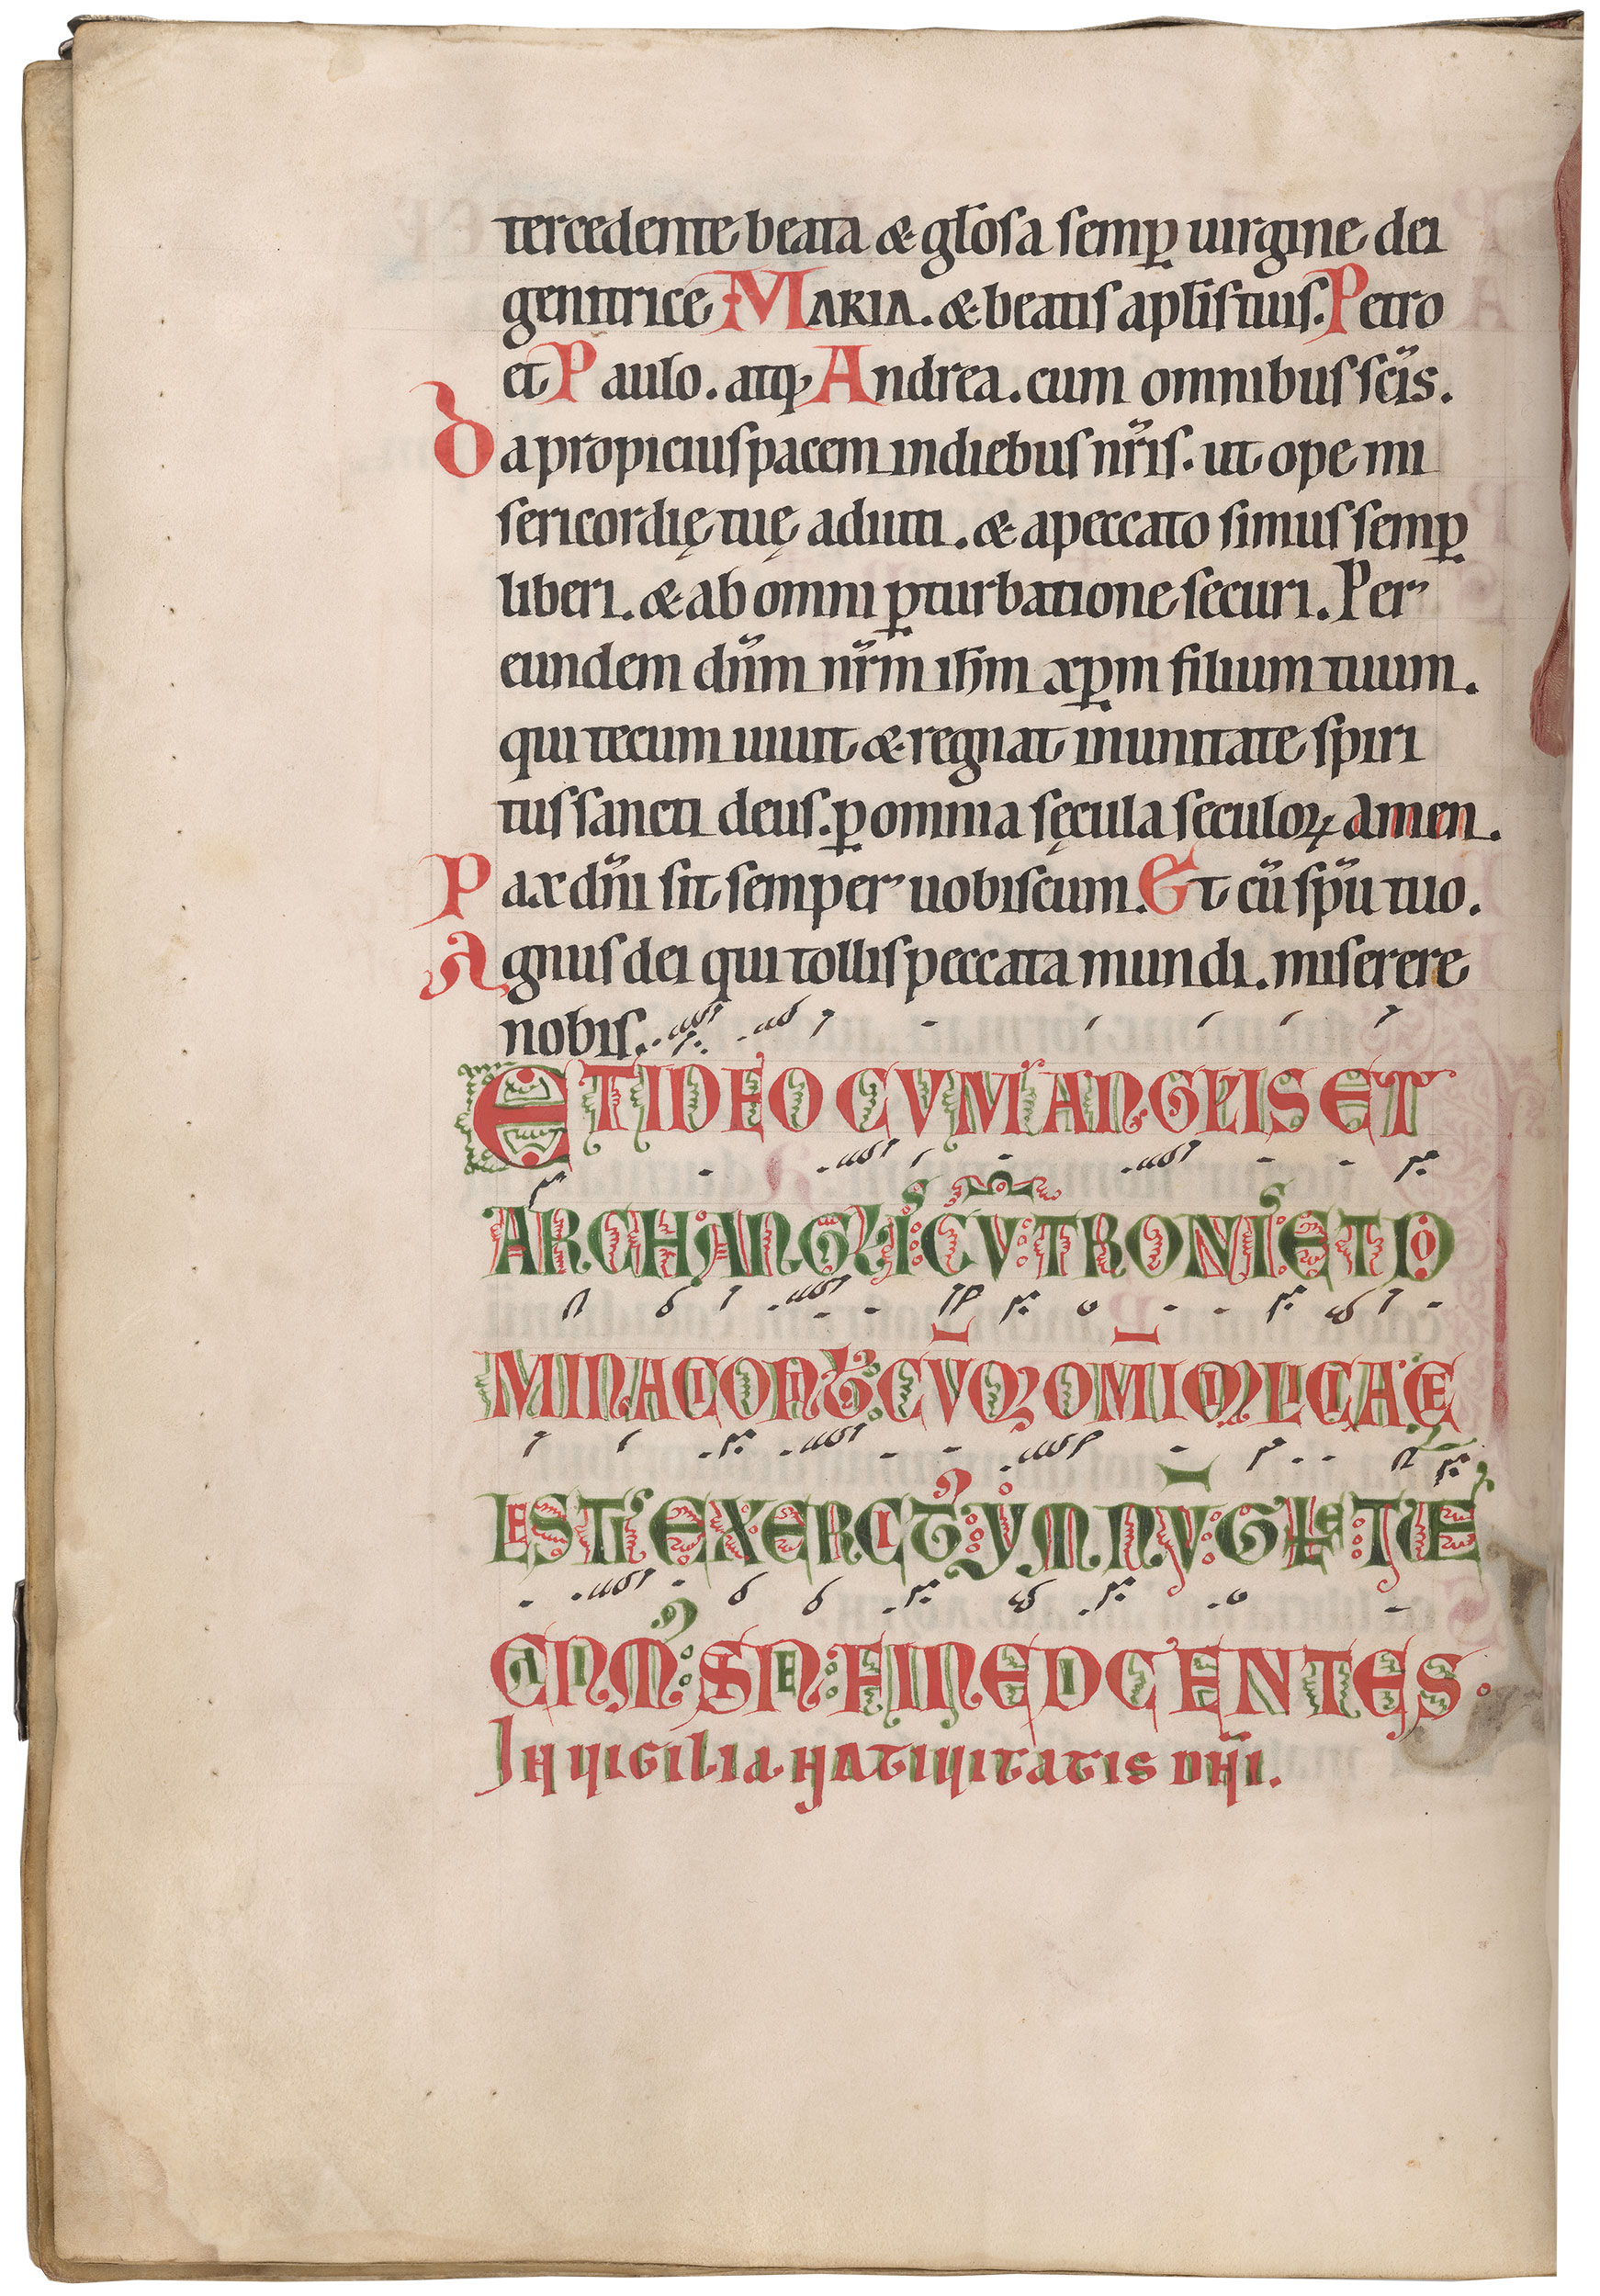 tercedente beata & gl̄osa semꝑ uirgine dei
genitrice MARIA. & beatis apl̄is tuis. Petro
et Paulo. atq; Andrea. cum omnibus sc̄is.
Da propicius pacem in diebus nr̄is. ut ope mi
sericordię tuę adiuti. & a peccato simus semꝑ
liberi. & ab omni ꝑturbatione securi. Per
eundem dn̄m nr̄m ih̄m xp̄m filium tuum.
qui tecum uiuit & regnat in unitate spiri
tus sancti deus. ꝑ omnia sęcula seculoꝝ amen.
Pax dn̄i sit semper uobiscum. Et cū sp̄u tuo.
Agnus dei qui tollis peccata mundi. miserere
nobis.
ET IDEO CVM ANGELIS ET
ARCHANGELIS CV̄ TRONIS ET DO
MINACIONIB; CV̄Q; OM̄I MILICIA CE
LESTIS EXERCIT9 YMNV̄ GLE TUE
CANIM9 SINE FINE DICENTES.
In uigilia natiuitatis dn̄i.